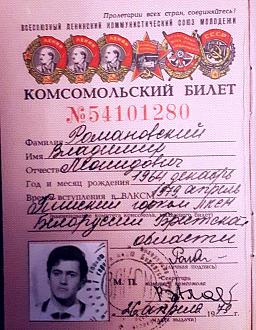 Пролетарии всех стран, соединяйтесь!
ВСЕСОЮЗНЫЙ ЛЕНИНСКИЙ КОММУНИСТИЧЕСКИЙ СОЮЗ МОЛОДЕЖИ
КОМСОМОЛЬСКИЙ БИЛЕТ
№54101280
Фамилия Романовский
Имя Владимир
Отчество Леонидович
Год и месяц рождения 1964 декабрь
Время вступления в ВЛКСМ 1979 апрель
Пинский
Белоруссии Брестской
области
(личная подпись)
Секретарь
М. П.
26 апреля 1979